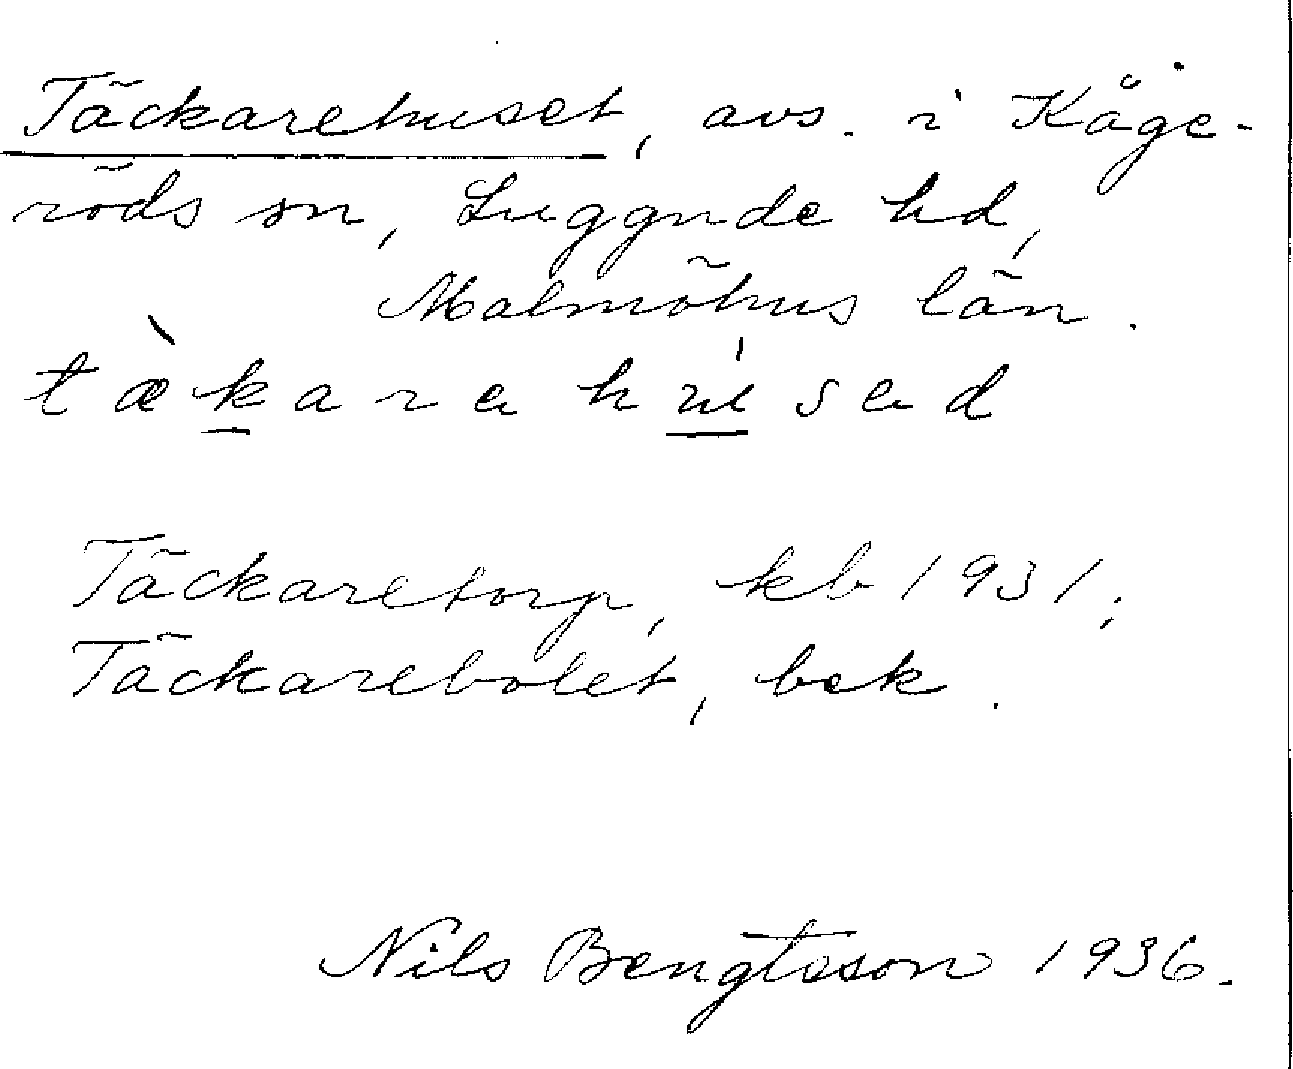 Täckarehuset, avs. i Kåge-
röds sn, Luggude hd,
Malmöhus län.
tækarehused
Täckaretorp, kb 1931;
Täckarebolet, bek.
Nils Bengtsson 1936.